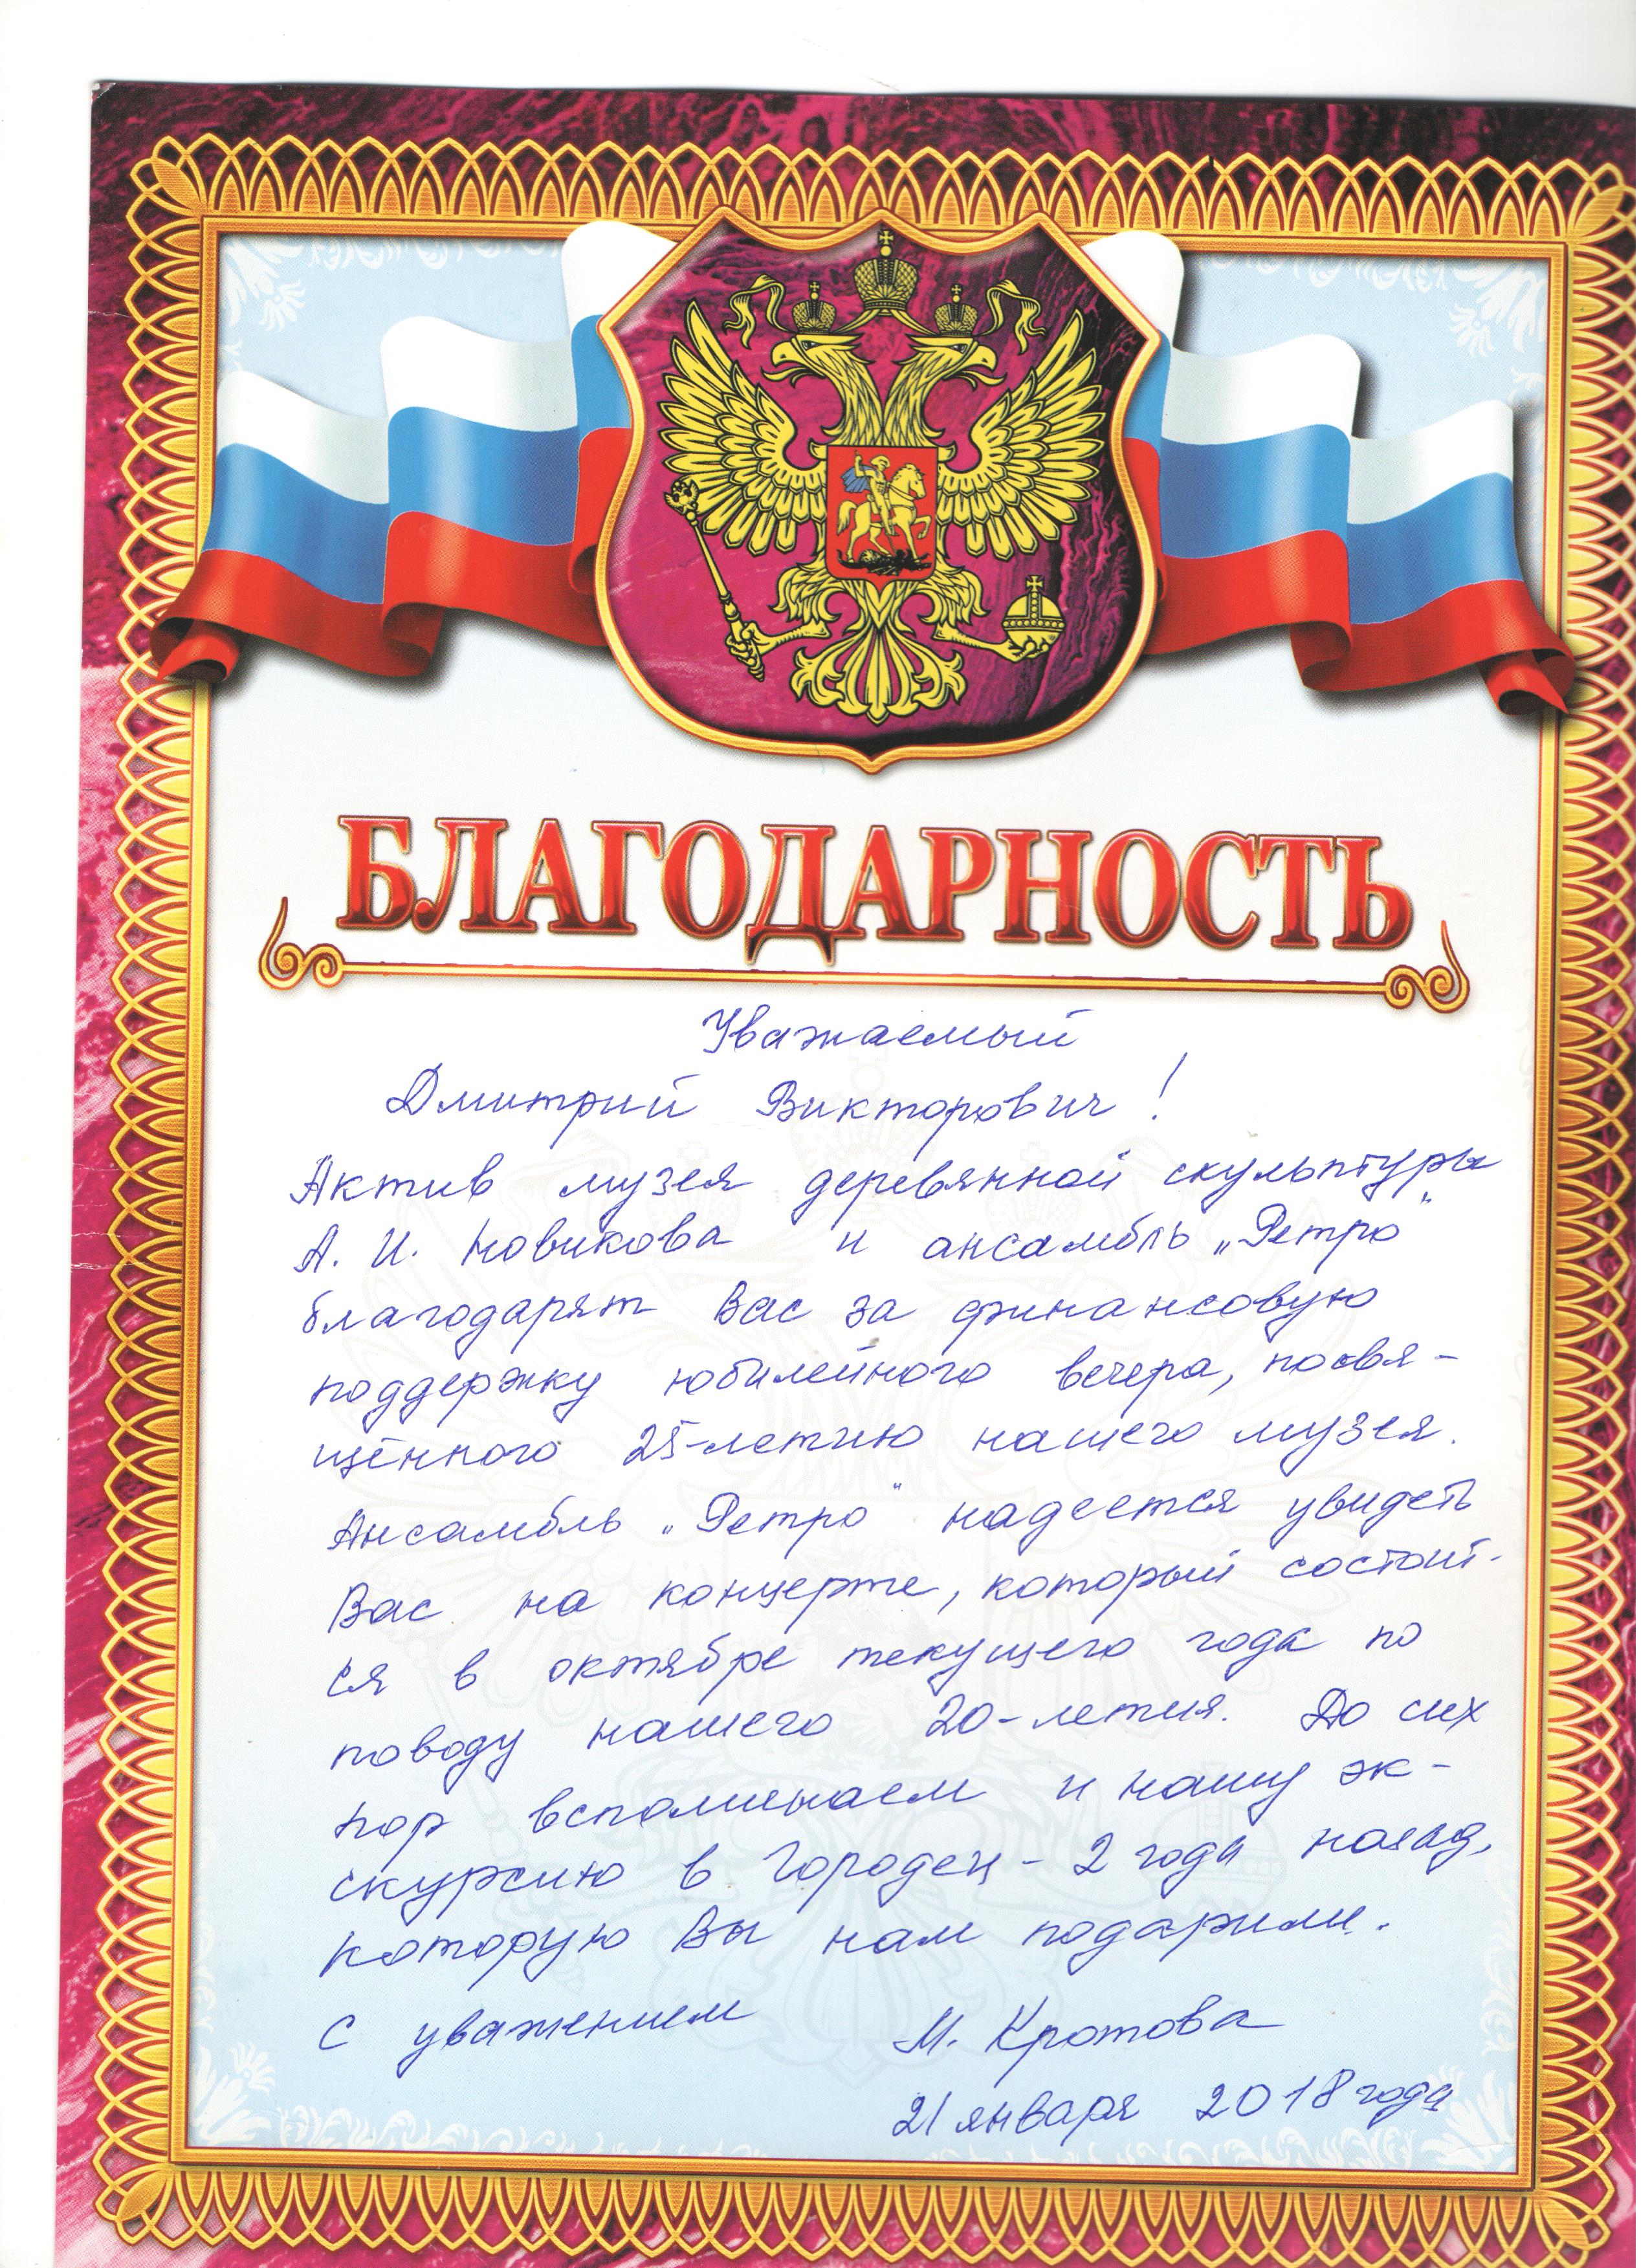 БЛАГОДАРНОСТЬ
Уважаемый
Дмитрий Викторович!
Актив музея деревянной скульптуры
А. И. Новикова и ансамбль „Ретро"
благодарят Вас за финансовую
поддержку юбилейного вечера, посвя-
щённого 25-летию нашего музея.
Ансамбль „Ретро" надеется увидеть
Вас на концерте, который состоит-
ся в октябре текущего года по
поводу нашего 20-летия. До сих
пор вспоминаем и нашу эк-
скурсию в Городец - 2 года назад,
которую Вы нам подарили.
С уважением М. Кротова
21 января 2018 года